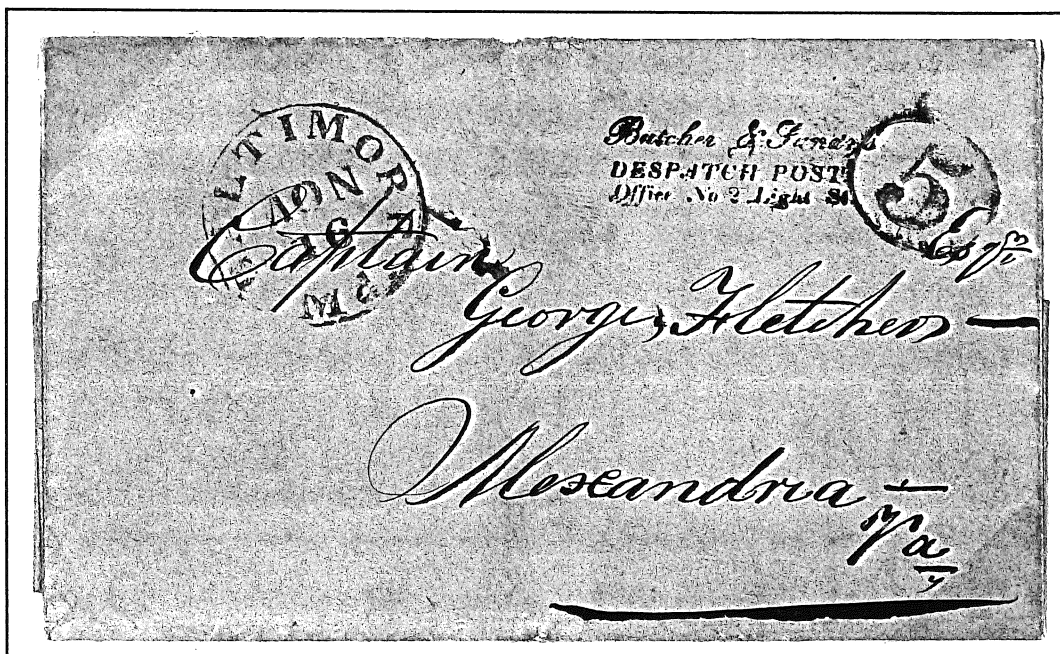 BALTIMORE
NOV
16
Md.
Butcher &
DESPATCH POST
Office No 2 Light St.
5
Captain
George Fletcher
Esqr
Alexandria
Va